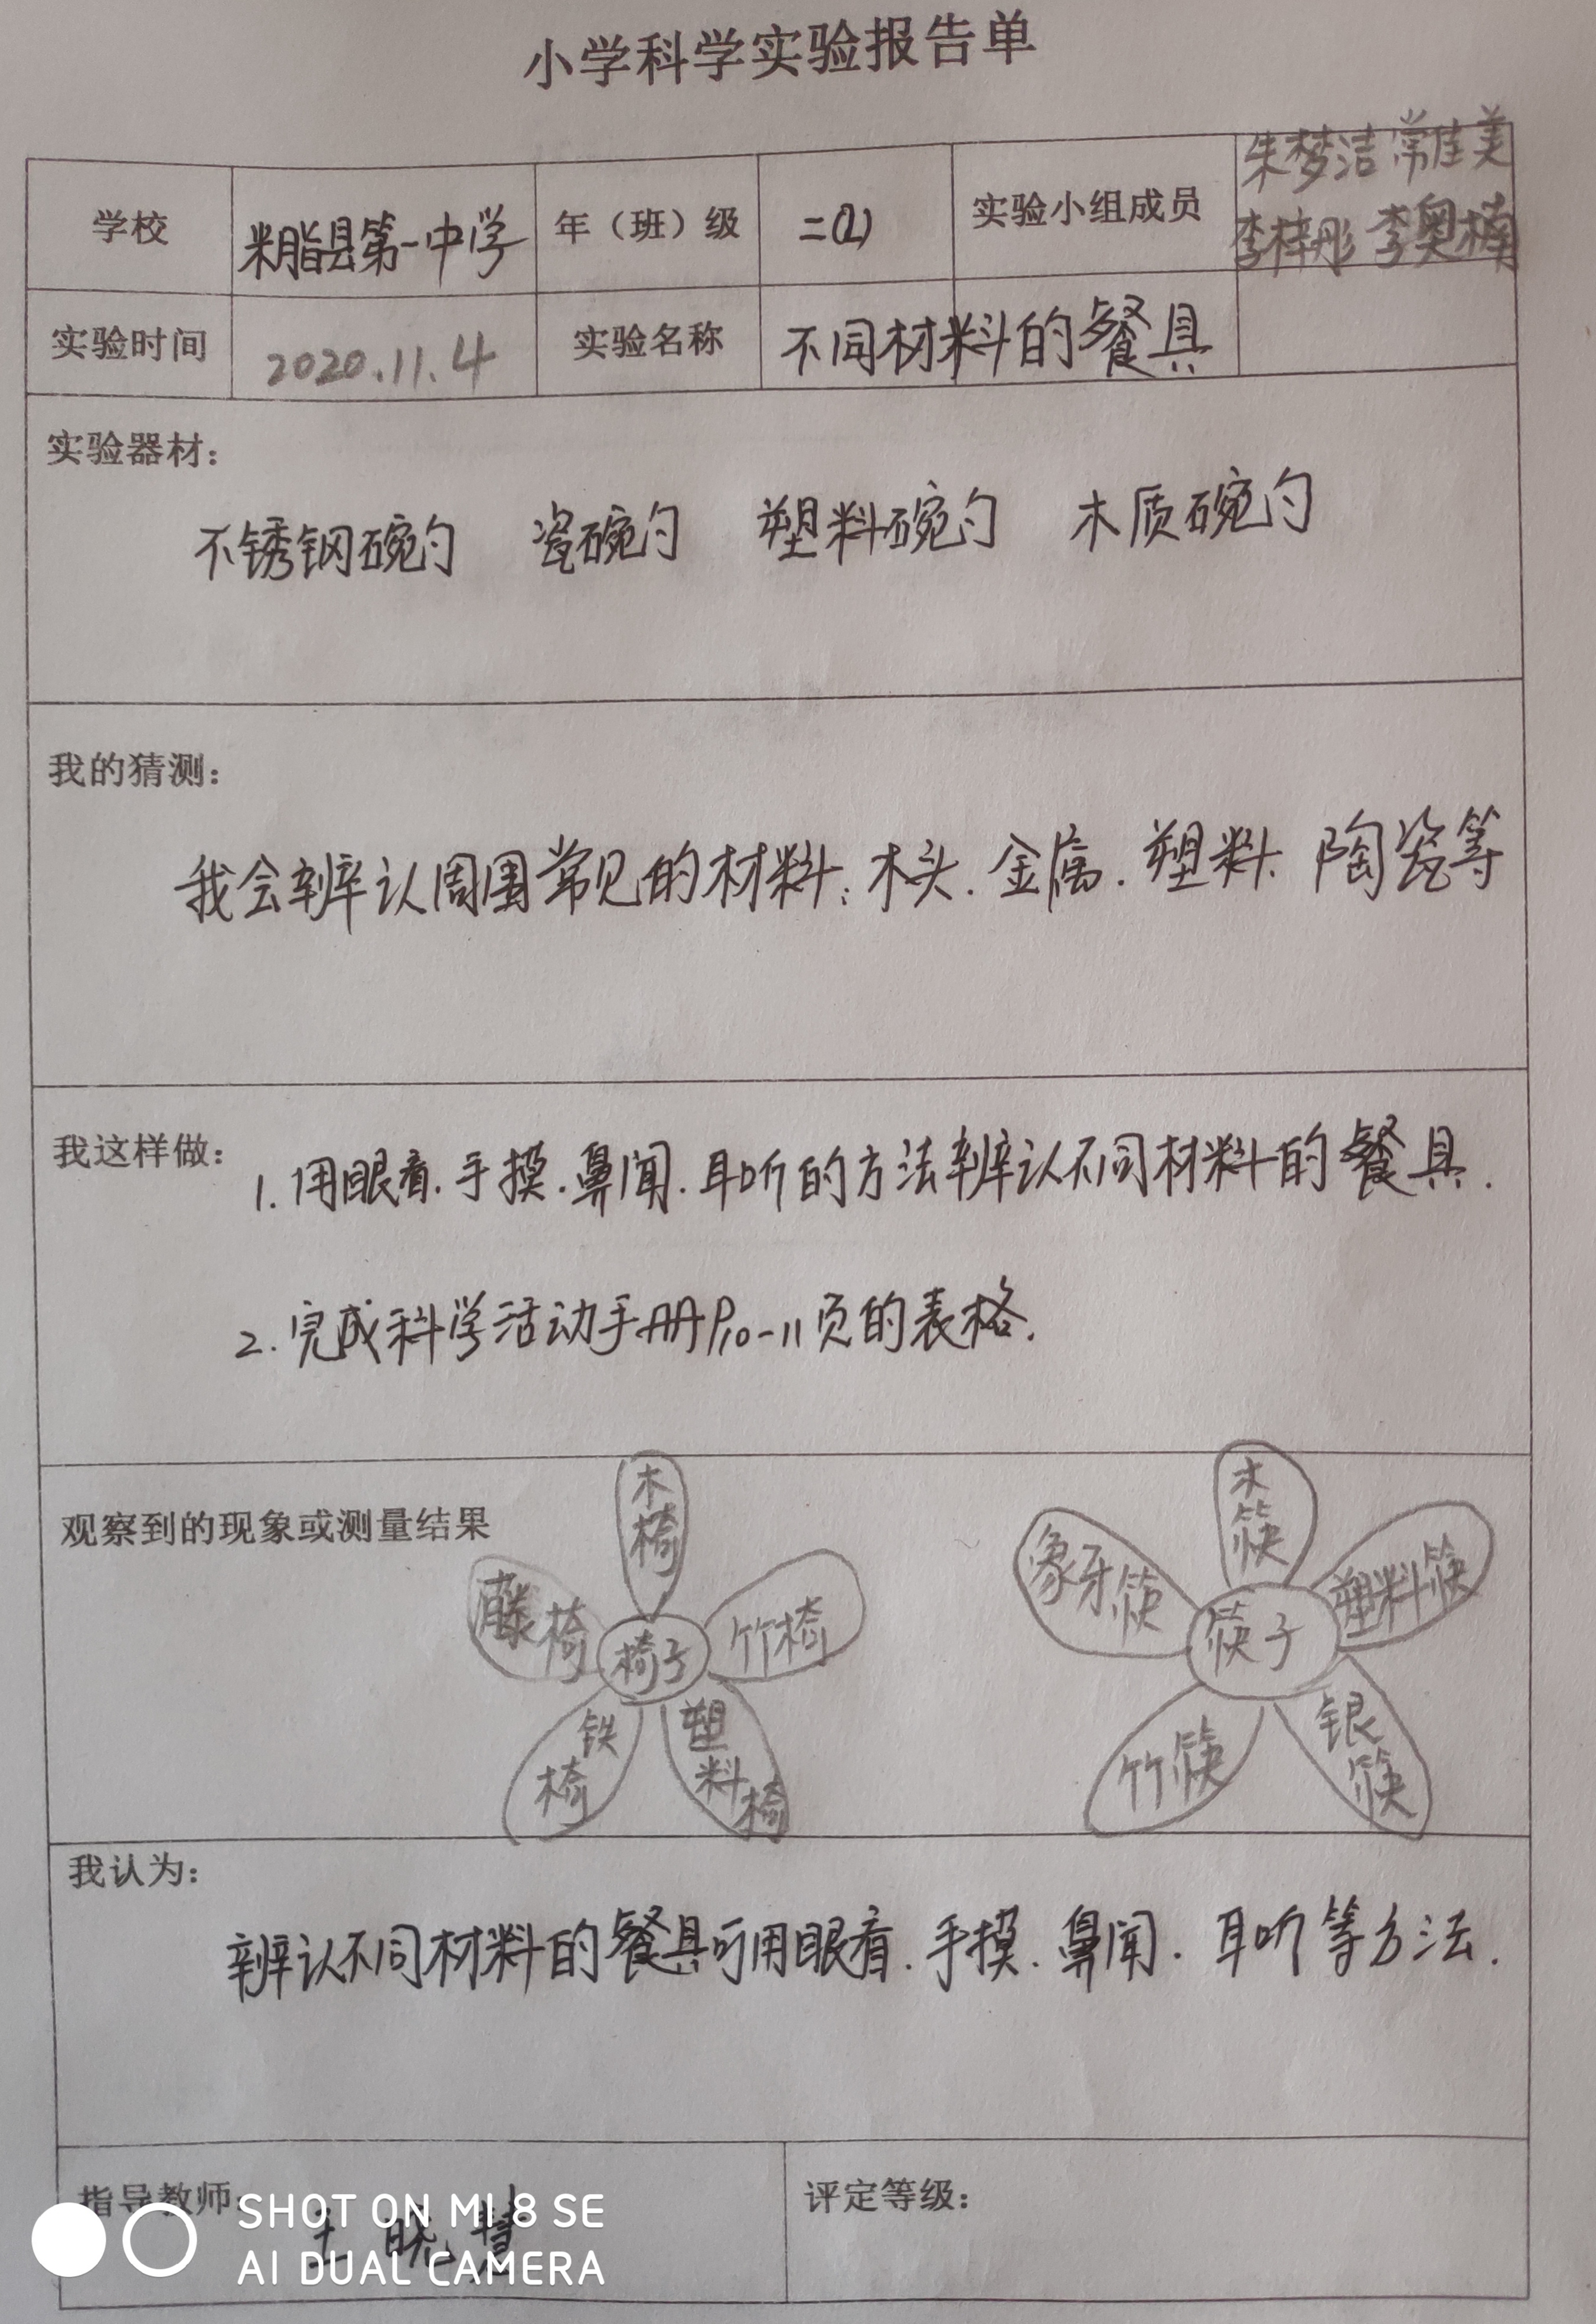 小学科学实验报告单
学校 米脂县第一中学 年（班）级 二(2) 实验小组成员 朱梦洁 常佳美
李梓彤 李奥楠
实验时间 2020.11.4 实验名称 不同材料的餐具
实验器材：
不锈钢碗勺 瓷碗勺 塑料碗勺 木质碗勺
我的猜测：
我会辨认周围常见的材料：木头.金属.塑料.陶瓷等
我这样做：
1.用眼看.手摸.鼻闻.耳听的方法辨认不同材料的餐具.
2.完成科学活动手册P10-11页的表格.
观察到的现象或测量结果
木椅
藤椅
椅子
竹椅
铁椅
塑料椅
木筷
象牙筷
筷子
塑料筷
竹筷
银筷
我认为：
辨认不同材料的餐具可用眼看.手摸.鼻闻.耳听等方法.
指导教师： 王晓慧
评定等级：
SHOT ON MI 8 SE
AI DUAL CAMERA